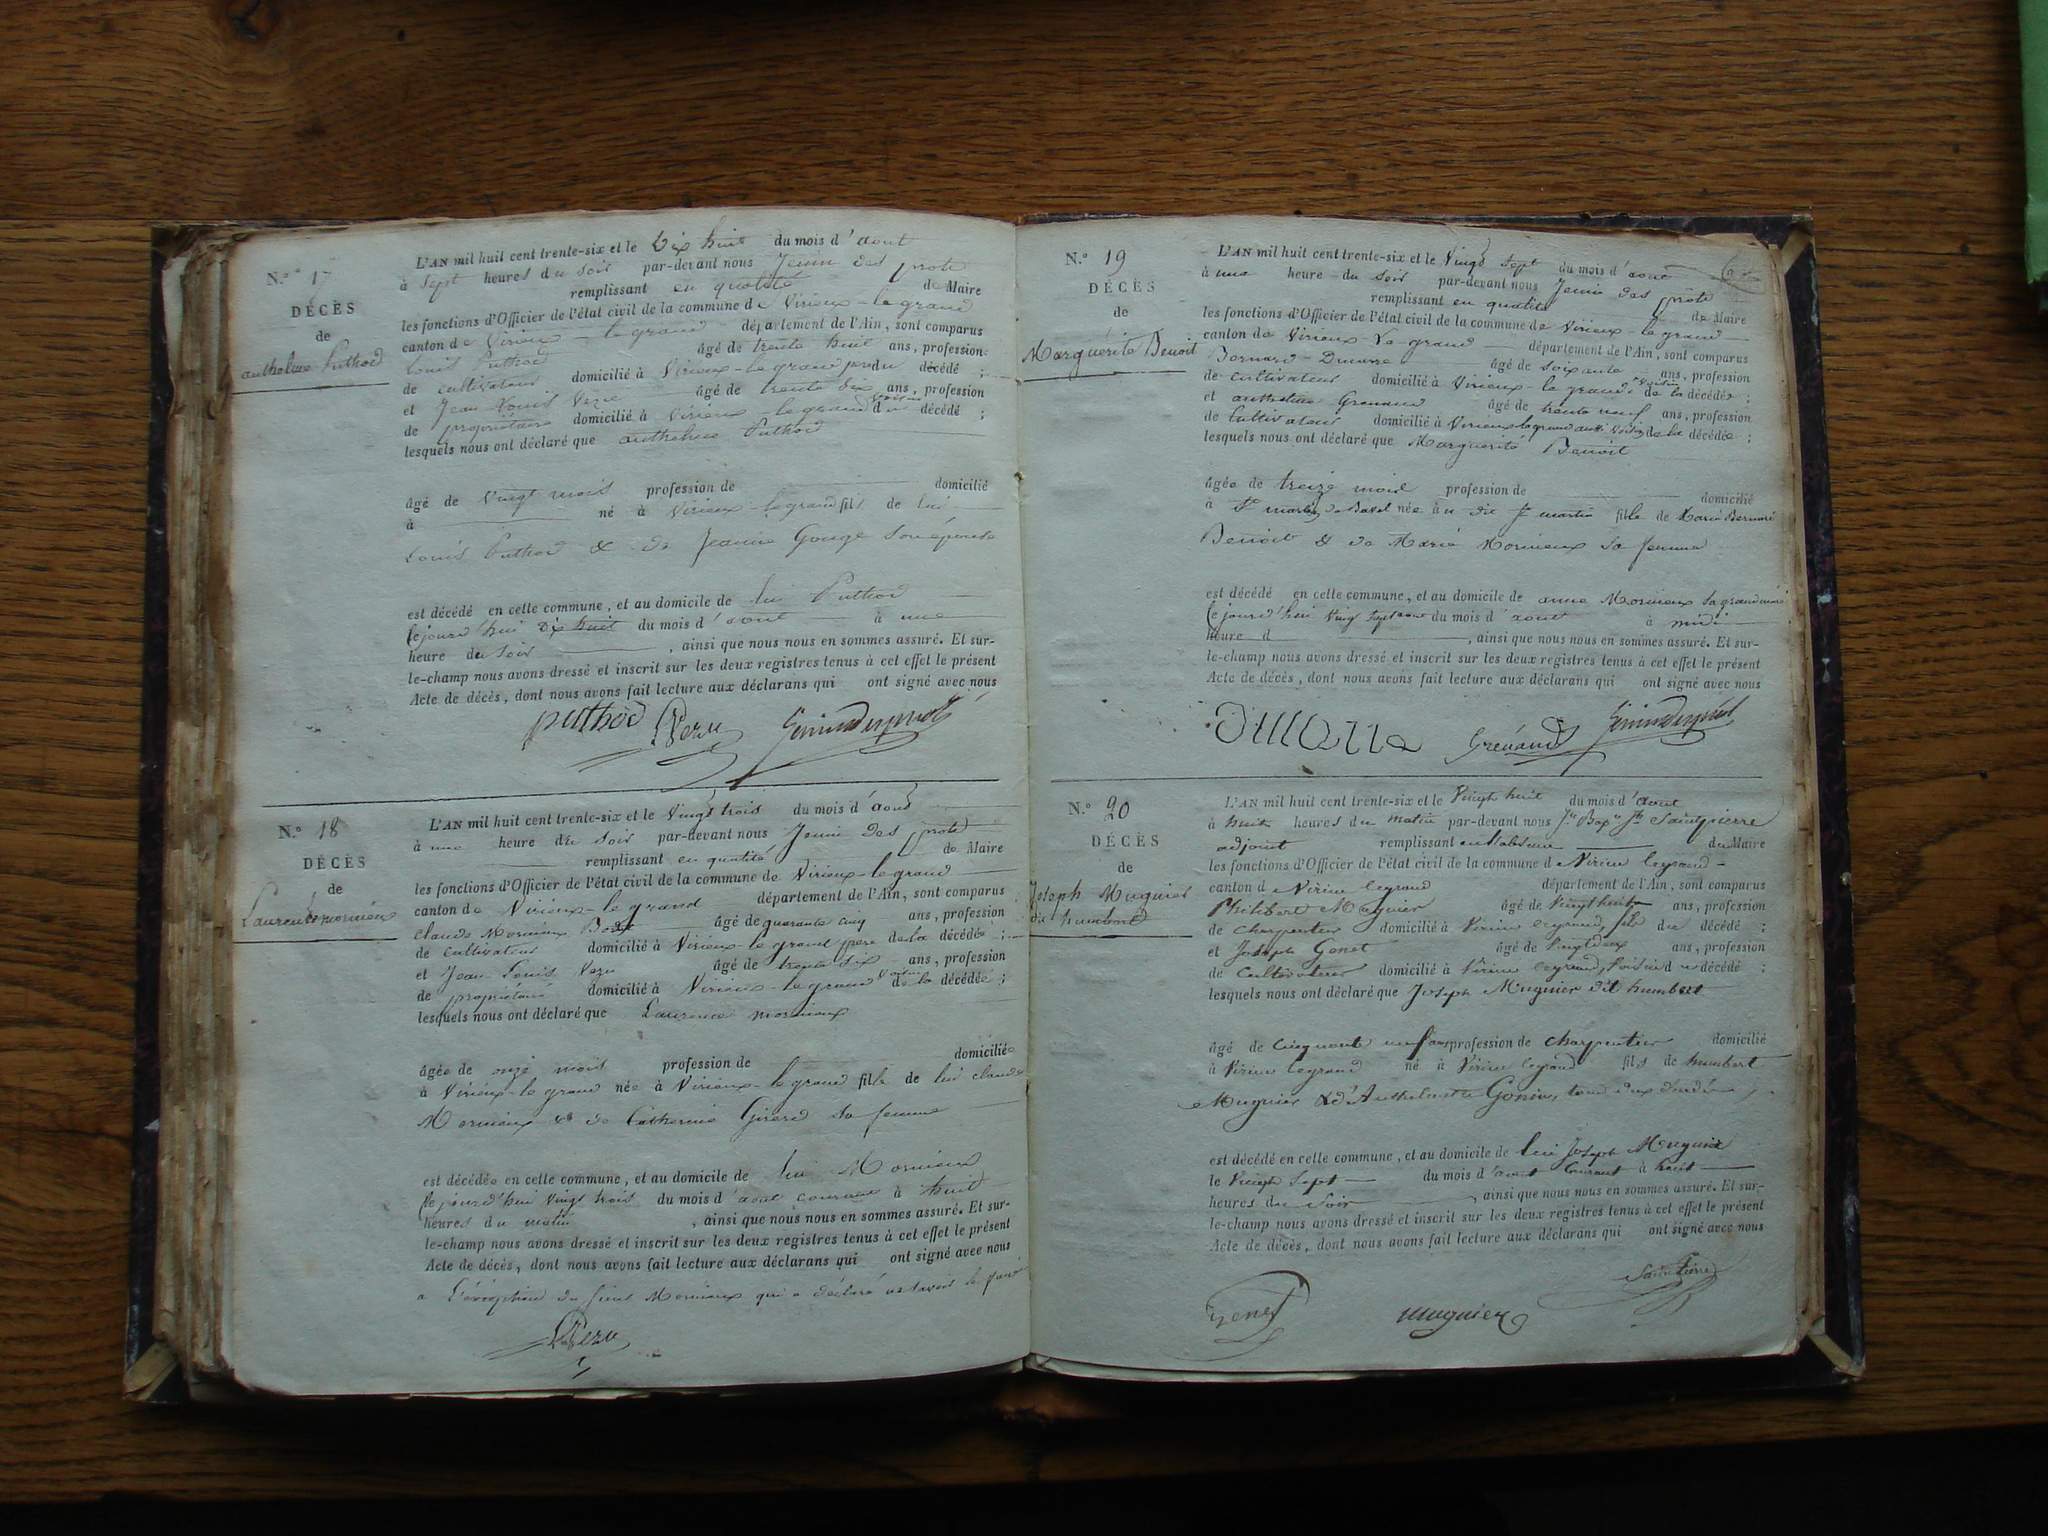 N.° 17
DÉCÈS
de
anthelme Puthod
L'AN mil huit cent trente-six et le Dix huit du mois d'aout
à Sept heures du Soir par-devant nous
remplissant en qualité de Maire
les fonctions d'Officier de l'état civil de la commune de Virieux-le grand
canton de Virieux-le grand département de l'Ain, sont comparus
Louis Puthod âgé de trente huit ans, profession
de cultivateur domicilié à Virieux-le grand du décédé ;
et Jean Louis âgé de trente ans, profession
de propriétaire domicilié à Virieux-le grand voisin du décédé ;
lesquels nous ont déclaré que anthelme Puthod
âgé de Vingt mois profession de domicilié
à né à Virieux-le grand fils de lui
Louis Puthod & de Gouge Son épouse
est décédé en cette commune, et au domicile de lui Puthod
Cejourd'hui dix huit du mois d'aout à une
heure du Soir, ainsi que nous nous en sommes assuré. Et sur-
le-champ nous avons dressé et inscrit sur les deux registres tenus à cet effet le présent
Acte de décès, dont nous avons fait lecture aux déclarans qui ont signé avec nous
puthod
N.° 18
DÉCÈS
de
L'AN mil huit cent trente-six et le Vingt trois du mois d'aout
à une heure du Soir par-devant nous
remplissant en qualité de Maire
les fonctions d'Officier de l'état civil de la commune de Virieux-le grand
canton de Virieux-le grand département de l'Ain, sont comparus
Claude Mormieux âgé de quarante cinq ans, profession
de cultivateur domicilié à Virieux-le grand père de la décédée ;
et Jean Louis âgé de trente six ans, profession
de propriétaire domicilié à Virieux-le grand voisin de la décédée ;
lesquels nous ont déclaré que Laurence mormieux
âgée de onze mois profession de domiciliée
à Virieux-le grand née à Virieux-le grand fille de lui claude
Mormieux & de Catherine Girerd Sa femme
est décédée en cette commune, et au domicile de lui Mormieux
Cejourd'hui vingt trois du mois d'aout courant à huit
heures du matin, ainsi que nous nous en sommes assuré. Et sur-
le-champ nous avons dressé et inscrit sur les deux registres tenus à cet effet le présent
Acte de décès, dont nous avons fait lecture aux déclarans qui ont signé avec nous
a L'exception du Mormieux qui a déclaré
N.° 19
DÉCÈS
de
Marguerite Benoit
L'AN mil huit cent trente-six et le Vingt Sept du mois d'aout
à une heure du Soir par-devant nous
remplissant en qualité de Maire
les fonctions d'Officier de l'état civil de la commune de Virieux-le grand
canton de Virieux-Le grand département de l'Ain, sont comparus
Bernard âgé de Soixante ans, profession
de cultivateur domicilié à Virieux-le grand voisin de la décédée ;
et anthelme Grenaud âgé de trente neuf ans, profession
de Cultivateur domicilié à Virieux le grand aussi voisin de la décédée ;
lesquels nous ont déclaré que Marguerite Benoit
âgée de treize mois profession de domicilié
à St martin de Bavel née au dit St martin fille de
Benoit & de Marie Mormieux Sa femme
est décédé en cette commune, et au domicile de anne Mormieux Sa grand mère
Cejourd'hui Vingt Sept du mois d'aout à midi
heure d, ainsi que nous nous en sommes assuré. Et sur-
le-champ nous avons dressé et inscrit sur les deux registres tenus à cet effet le présent
Acte de décès, dont nous avons fait lecture aux déclarans qui ont signé avec nous
Grenaud
N.° 20
DÉCÈS
de
Joseph Muguier
dit humbert
L'AN mil huit cent trente-six et le Vingt huit du mois d'aout
à huit heures du matin par-devant nous Saintpierre
adjoint remplissant en l'absence du Maire
les fonctions d'Officier de l'état civil de la commune d Virieu legrand
canton d Virieu legrand département de l'Ain, sont comparus
Philibert Muguier âgé de Vingt huit ans, profession
de charpentier domicilié à Virieu legrand, fils du décédé ;
et Joseph Gonet âgé de Vingt deux ans, profession
de Cultivateur domicilié à Virieu legrand, voisin du décédé ;
lesquels nous ont déclaré que Joseph Muguier dit humbert
âgé de Cinquante neuf ans profession de charpentier domicilié
à Virieu legrand né à Virieu legrand fils de humbert
Muguier & d'Anthelmette tous deux
est décédé en cette commune, et au domicile de lui Joseph Muguier
le Vingt Sept du mois d'aout Courant à huit
heures du Soir, ainsi que nous nous en sommes assuré. Et sur-
le-champ nous avons dressé et inscrit sur les deux registres tenus à cet effet le présent
Acte de décès, dont nous avons fait lecture aux déclarans qui ont signé avec nous
Saintpierre
muguier